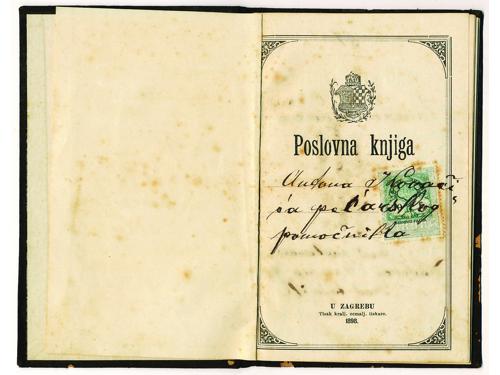 Poslovna knjiga
Antuna Kovači
ća pekarskog
pomoćnika
U ZAGREBU
Tisak kralj. zemalj. tiskare.
1898.